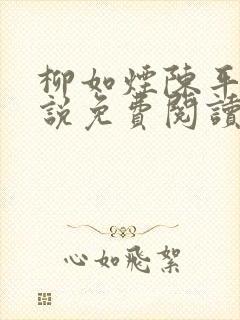 柳如煙陳平
說免費閱讀
心如飛絮